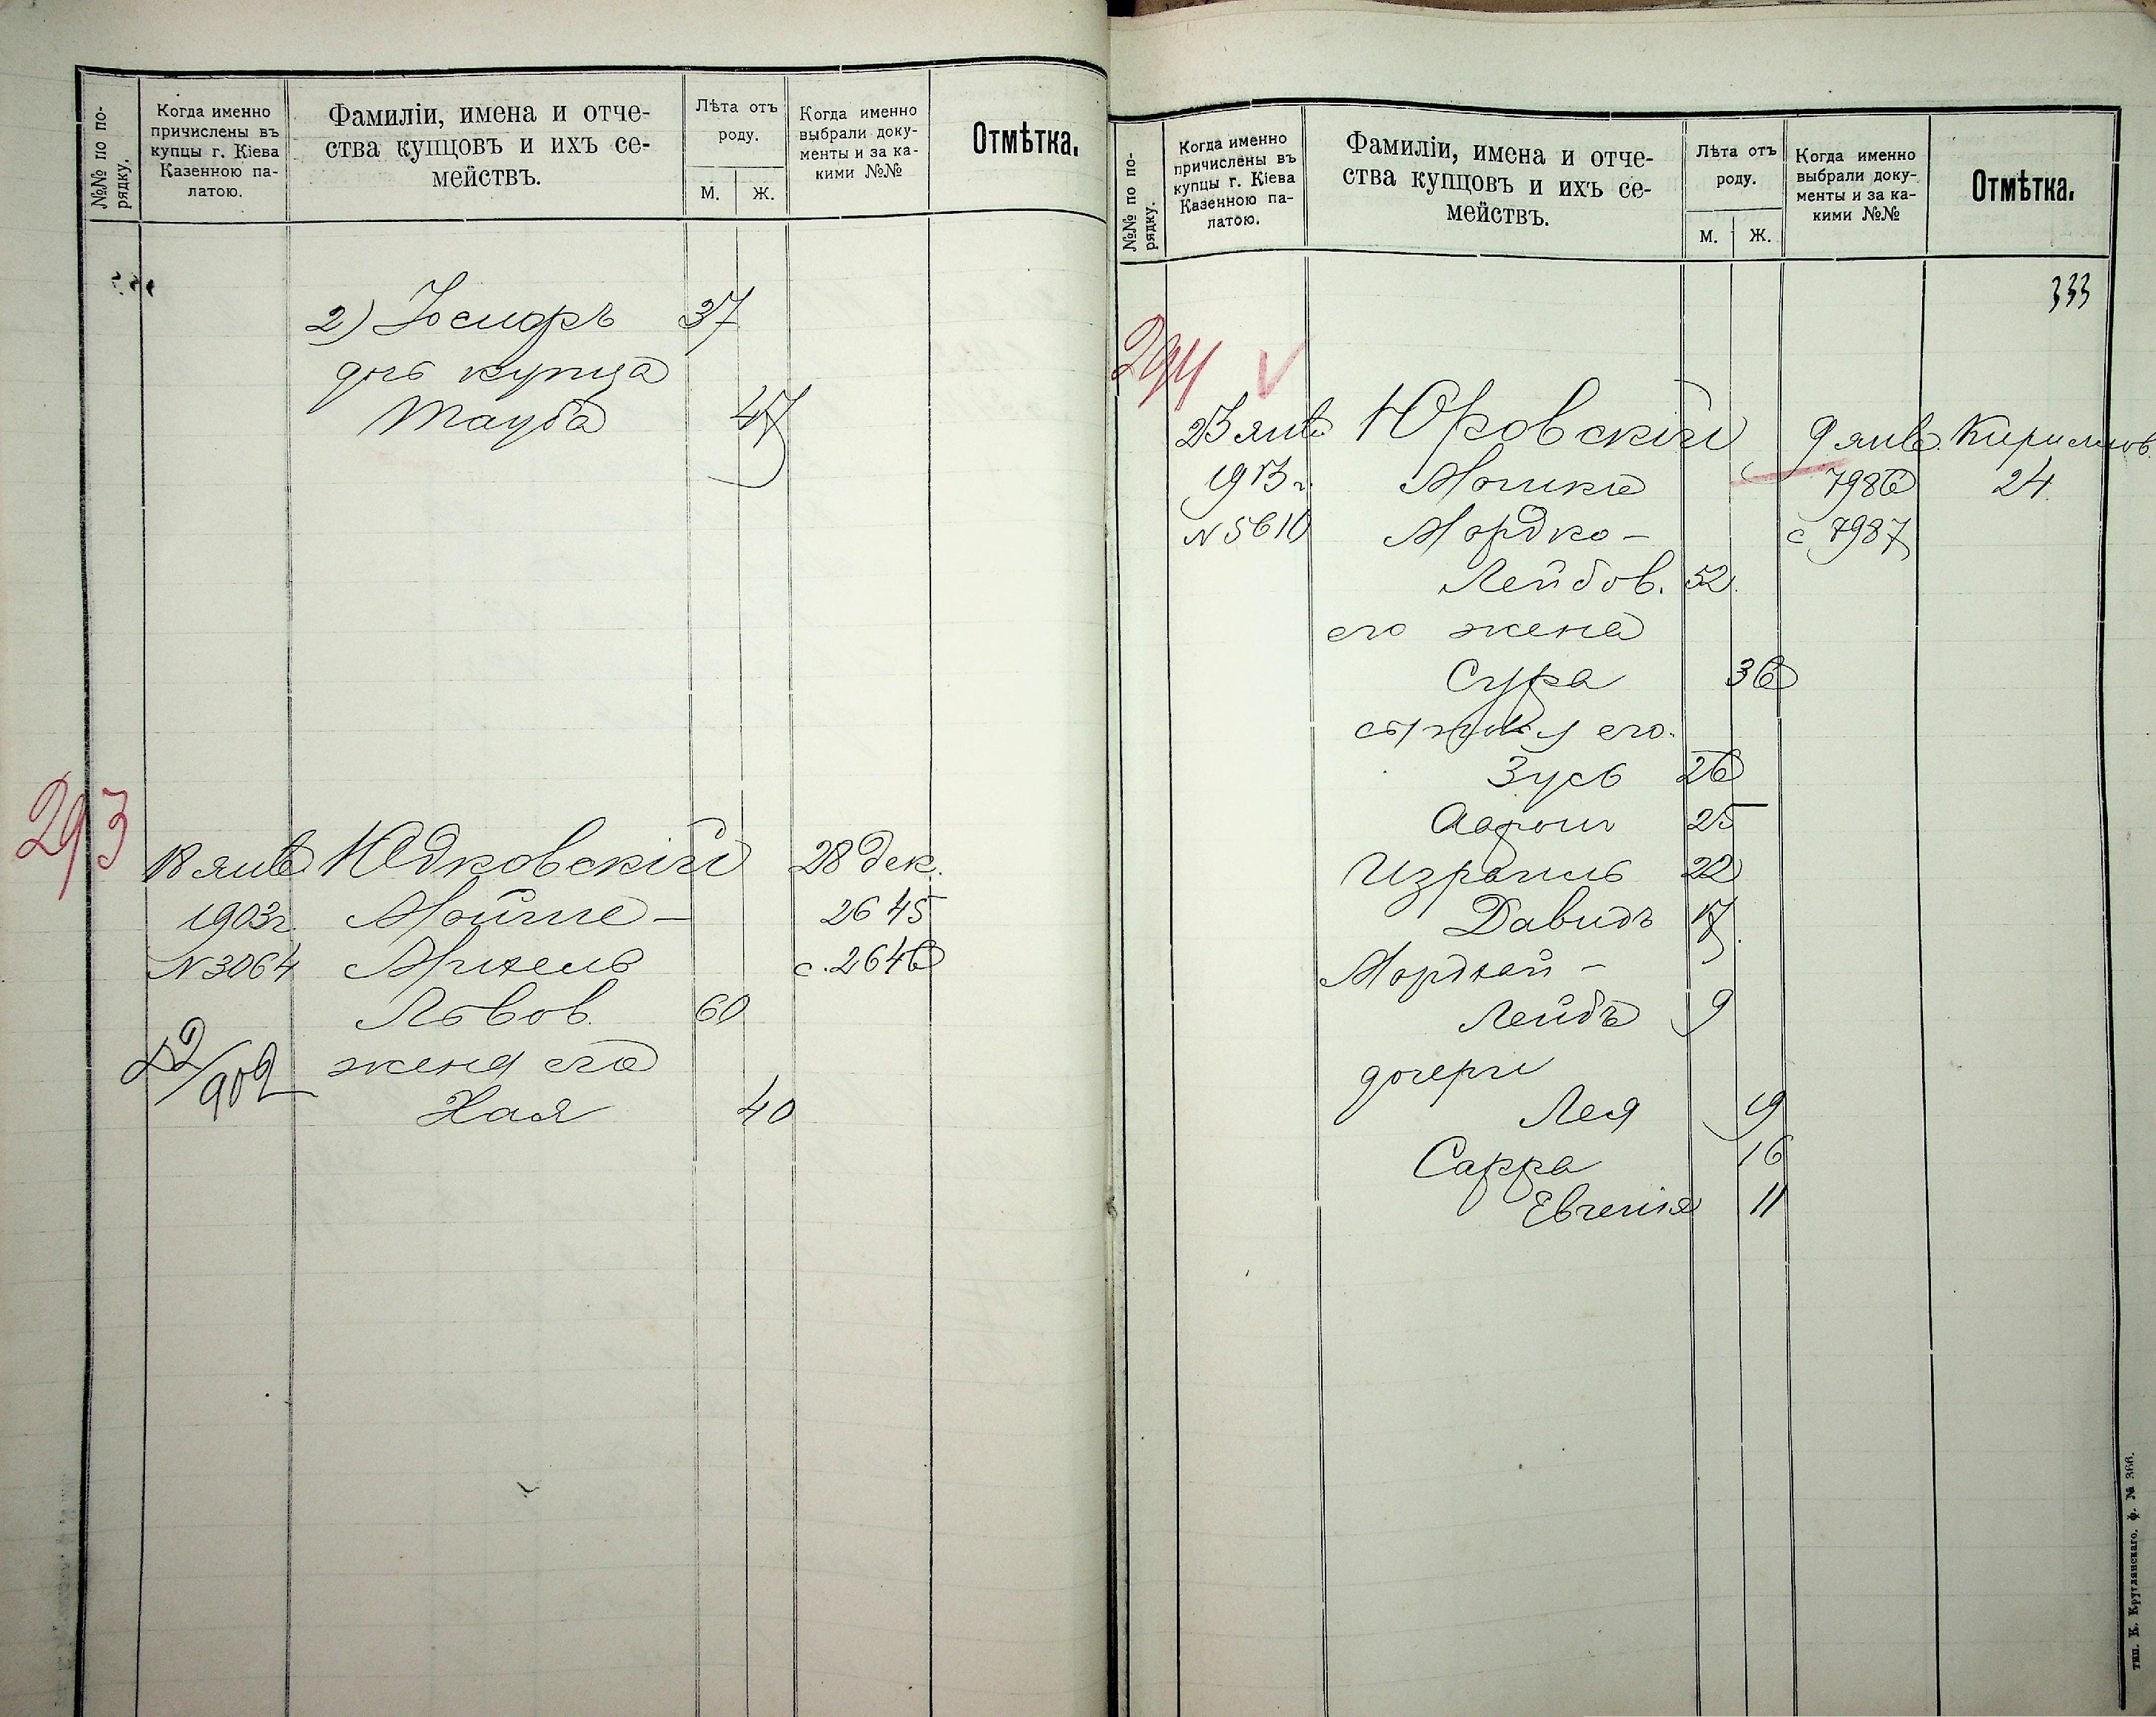 №№ по по-
рядку.
Когда именно
причислены въ
купцы г. Кіева
Казенною па-
латою.
Фамиліи, имена и отче-
ства купцовъ и ихъ се-
мействъ.
Лѣта отъ
роду.
М.
Ж.
Когда именно
выбрали доку-
менты и за ка-
кими №№
Отмѣтка.
2) Іосифъ 37
дчь купца
Тауба 47
293
18 янв Юдковскій 28 дек.
1903г. Мойше- 2645
№ 3064 Михель с. 2646
Львов. 60
жена его
902
Хая 40
№№ по по-
рядку.
Когда именно
причислены въ
купцы г. Кіева
Казенною па-
латою.
Фамиліи, имена и отче-
ства купцовъ и ихъ се-
мействъ.
Лѣта отъ
роду.
М.
Ж.
Когда именно
выбрали доку-
менты и за ка-
кими №№
Отмѣтка.
333
294
янв Юровскій 9 янв. Кирилов.
Мошка 7986 24
N 5610 Мордко- с 7987
Лейбов. 52.
его жена
Сура 36
его.
Зусь 26
Ааронъ 25
Израиль 22
Давидъ 17.
Мордхай-
Лейбъ 9
дочери
Лея 19
Сарра 16
Евгенія 11
тип. К. Круглянскаго, ф. № 366.